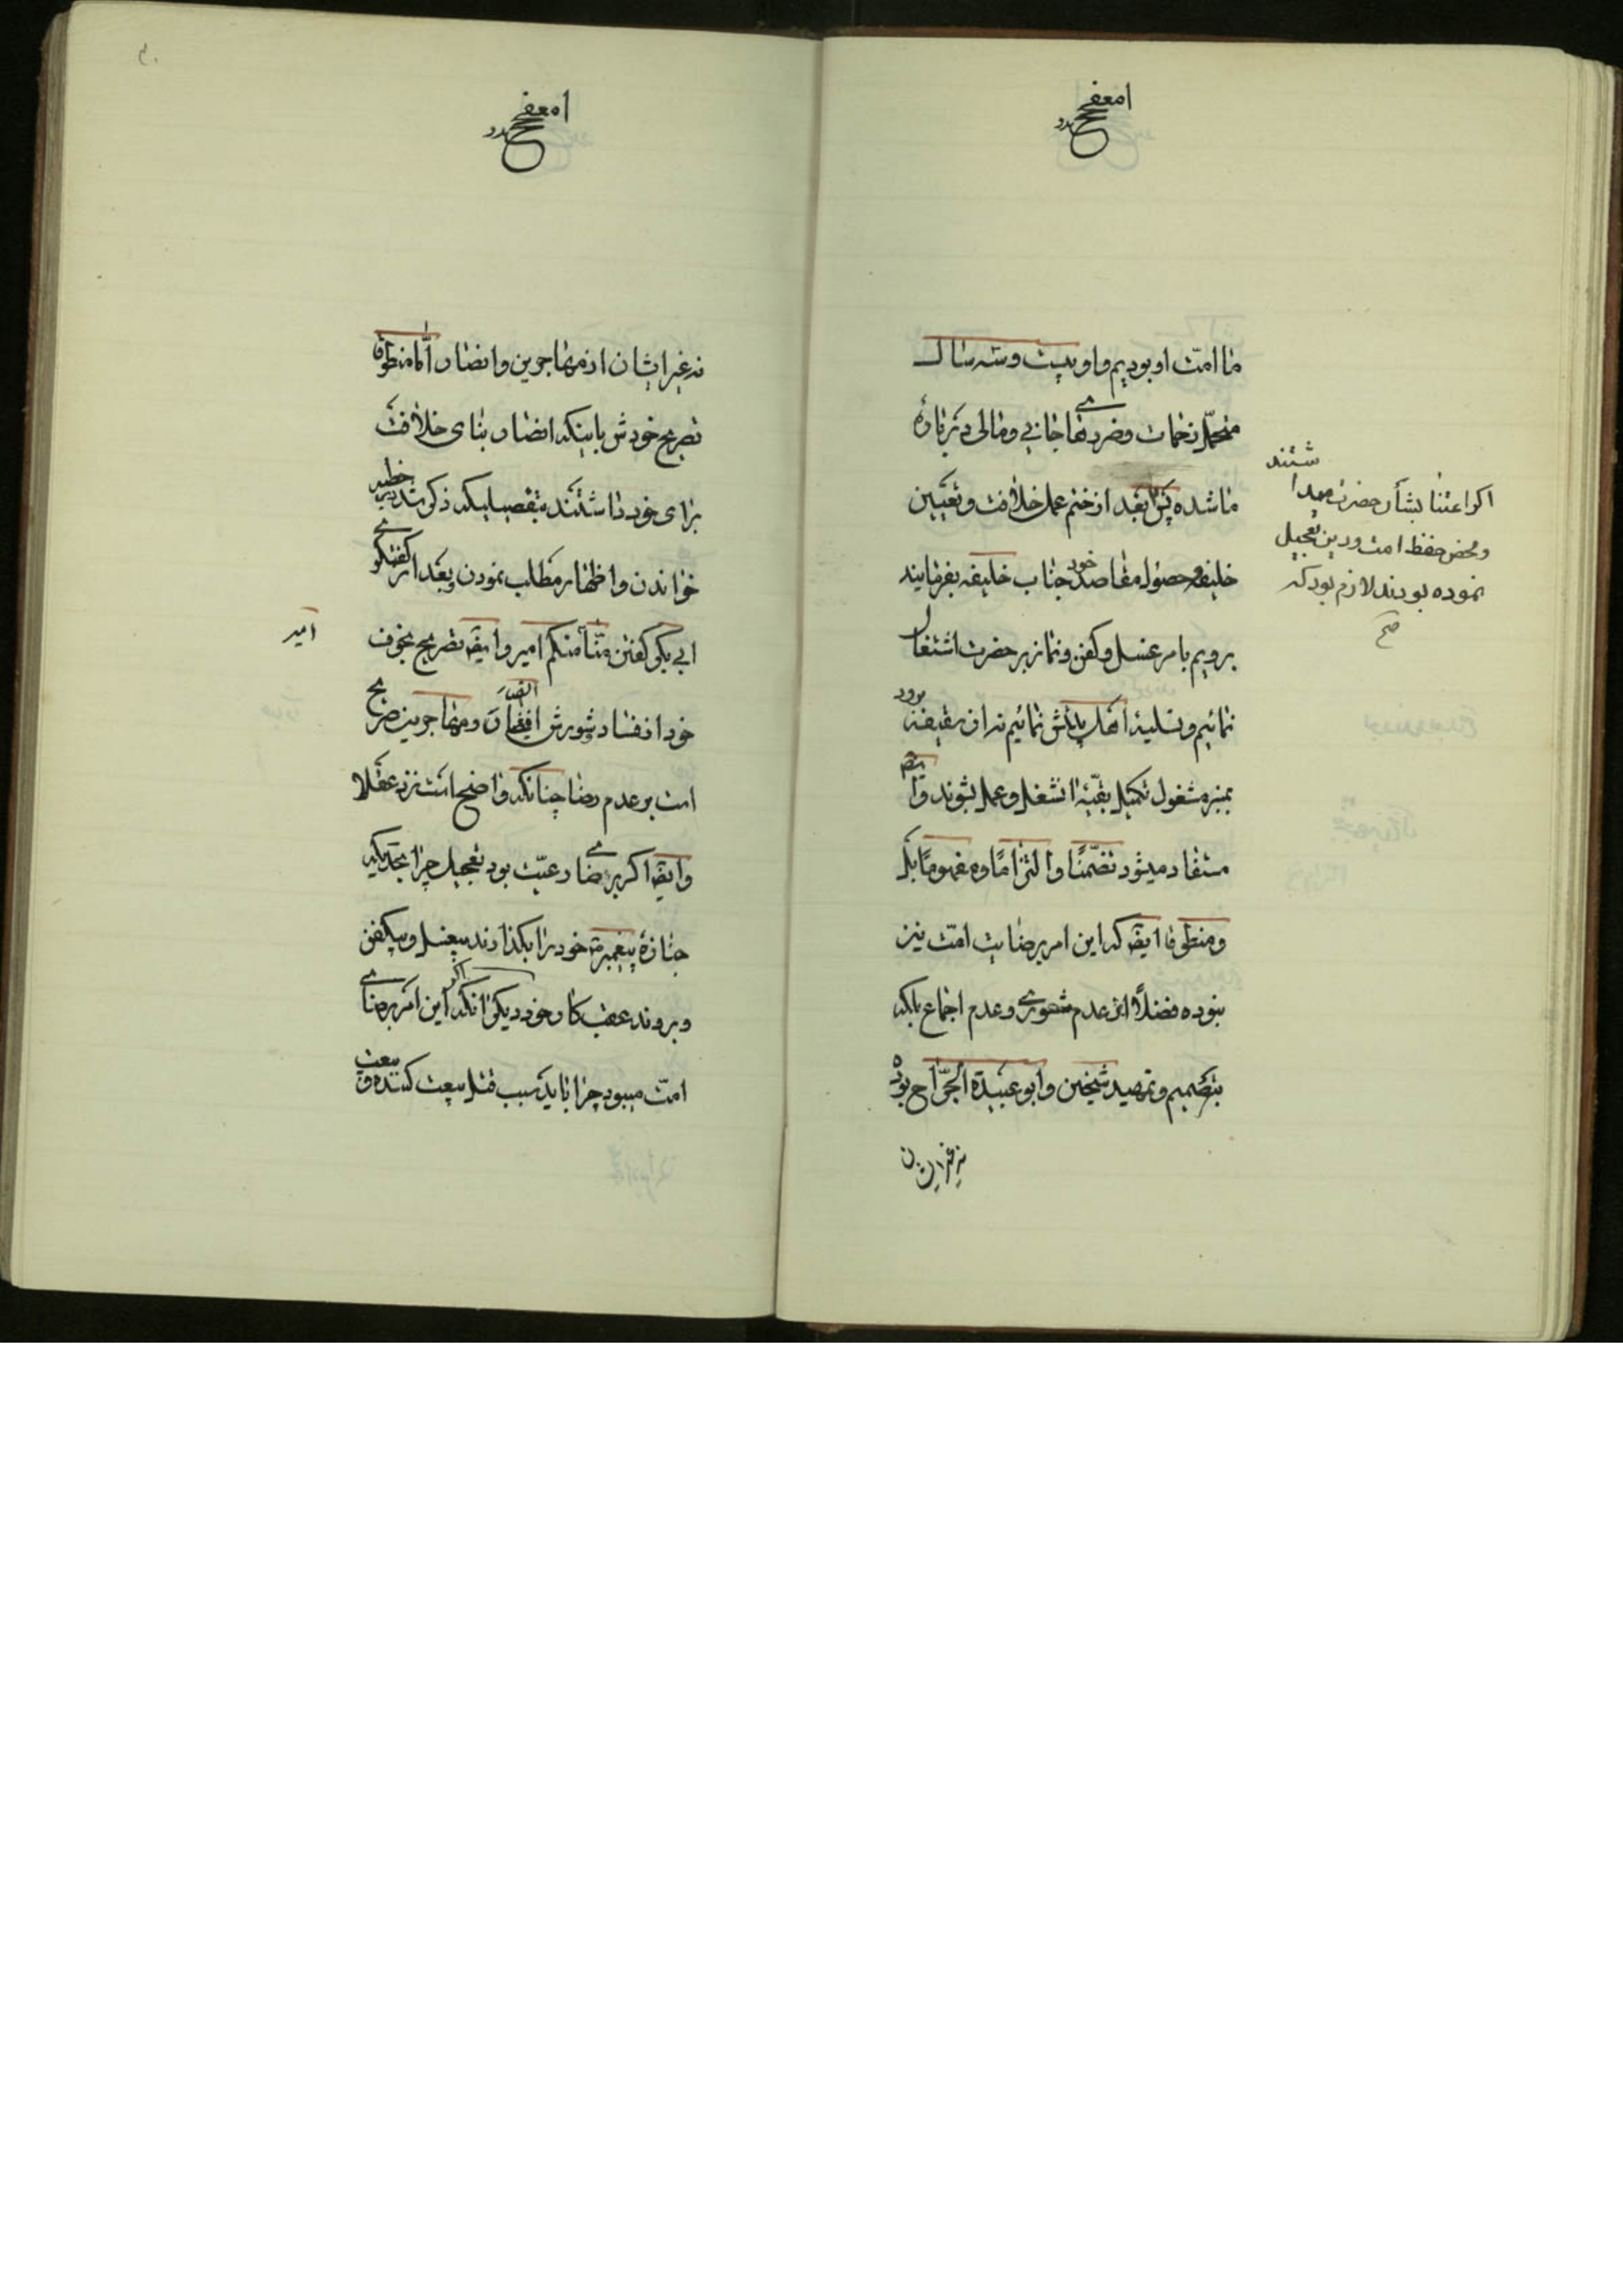 ما امت او بودیم و او بیست و سه سال
متحمل زحمات و ضررهای جانی و مالی درباره
ما شده پس بعد از ختم عمل خلافت و تعیین
خلیفه و حصول مقاصد خود جناب خلیفه بفرمایند
برویم بامر غسل و کفن و نماز بر حضرت اشتغال
نمائیم و تسلیه اهل بیتش نمائیم نه از سقیفه برود
بمنبر مشغول تکمیل بقیه شغل و عمل بشوند و ایضا
مستفاد میشود تضمنا و التزاما و مفهوما بلکه
و منطوقا ایضا که این امر برضایت امت نیز
نبوده فضلا از عدم شوری و عدم اجماع بلکه
بتصمیم و تمهید شیخین و ابو عبیدة الجراح بوده
نه غیر ایشان
اگر اعتنا بشأن حضرت میداشتند
و محض حفظ امت و دین تعجیل
نموده بودند لازم بود که
صح
نه غیر ایشان از مهاجرین و انصار اما منطوقا
تصریح خودش باینکه انصار بنای خلافت
برای خود داشتند بتفصیلیکه ذکر شد در خطبه
خواندن و اظهار مطلب نمودن و بعد از گفتگوی
ابی بکر گفتن منا منکم امیر و ایضا تصریح بخوف
امیر
خود از فساد و شورش انصار و مهاجرین صریح
است بر عدم رضا چنانکه واضح است نزد عقلا
و ایضا اگر برضای رعیت بود تعجیل چرا بحدیکه
جنازه پیغمبر خود را بگذارند بیغسل و بیکفن
و بروند عقب کار خود دیگر آنکه اگر این امر برضای
امت میبود چرا باید سبب قتل بیعت کننده و بیعت